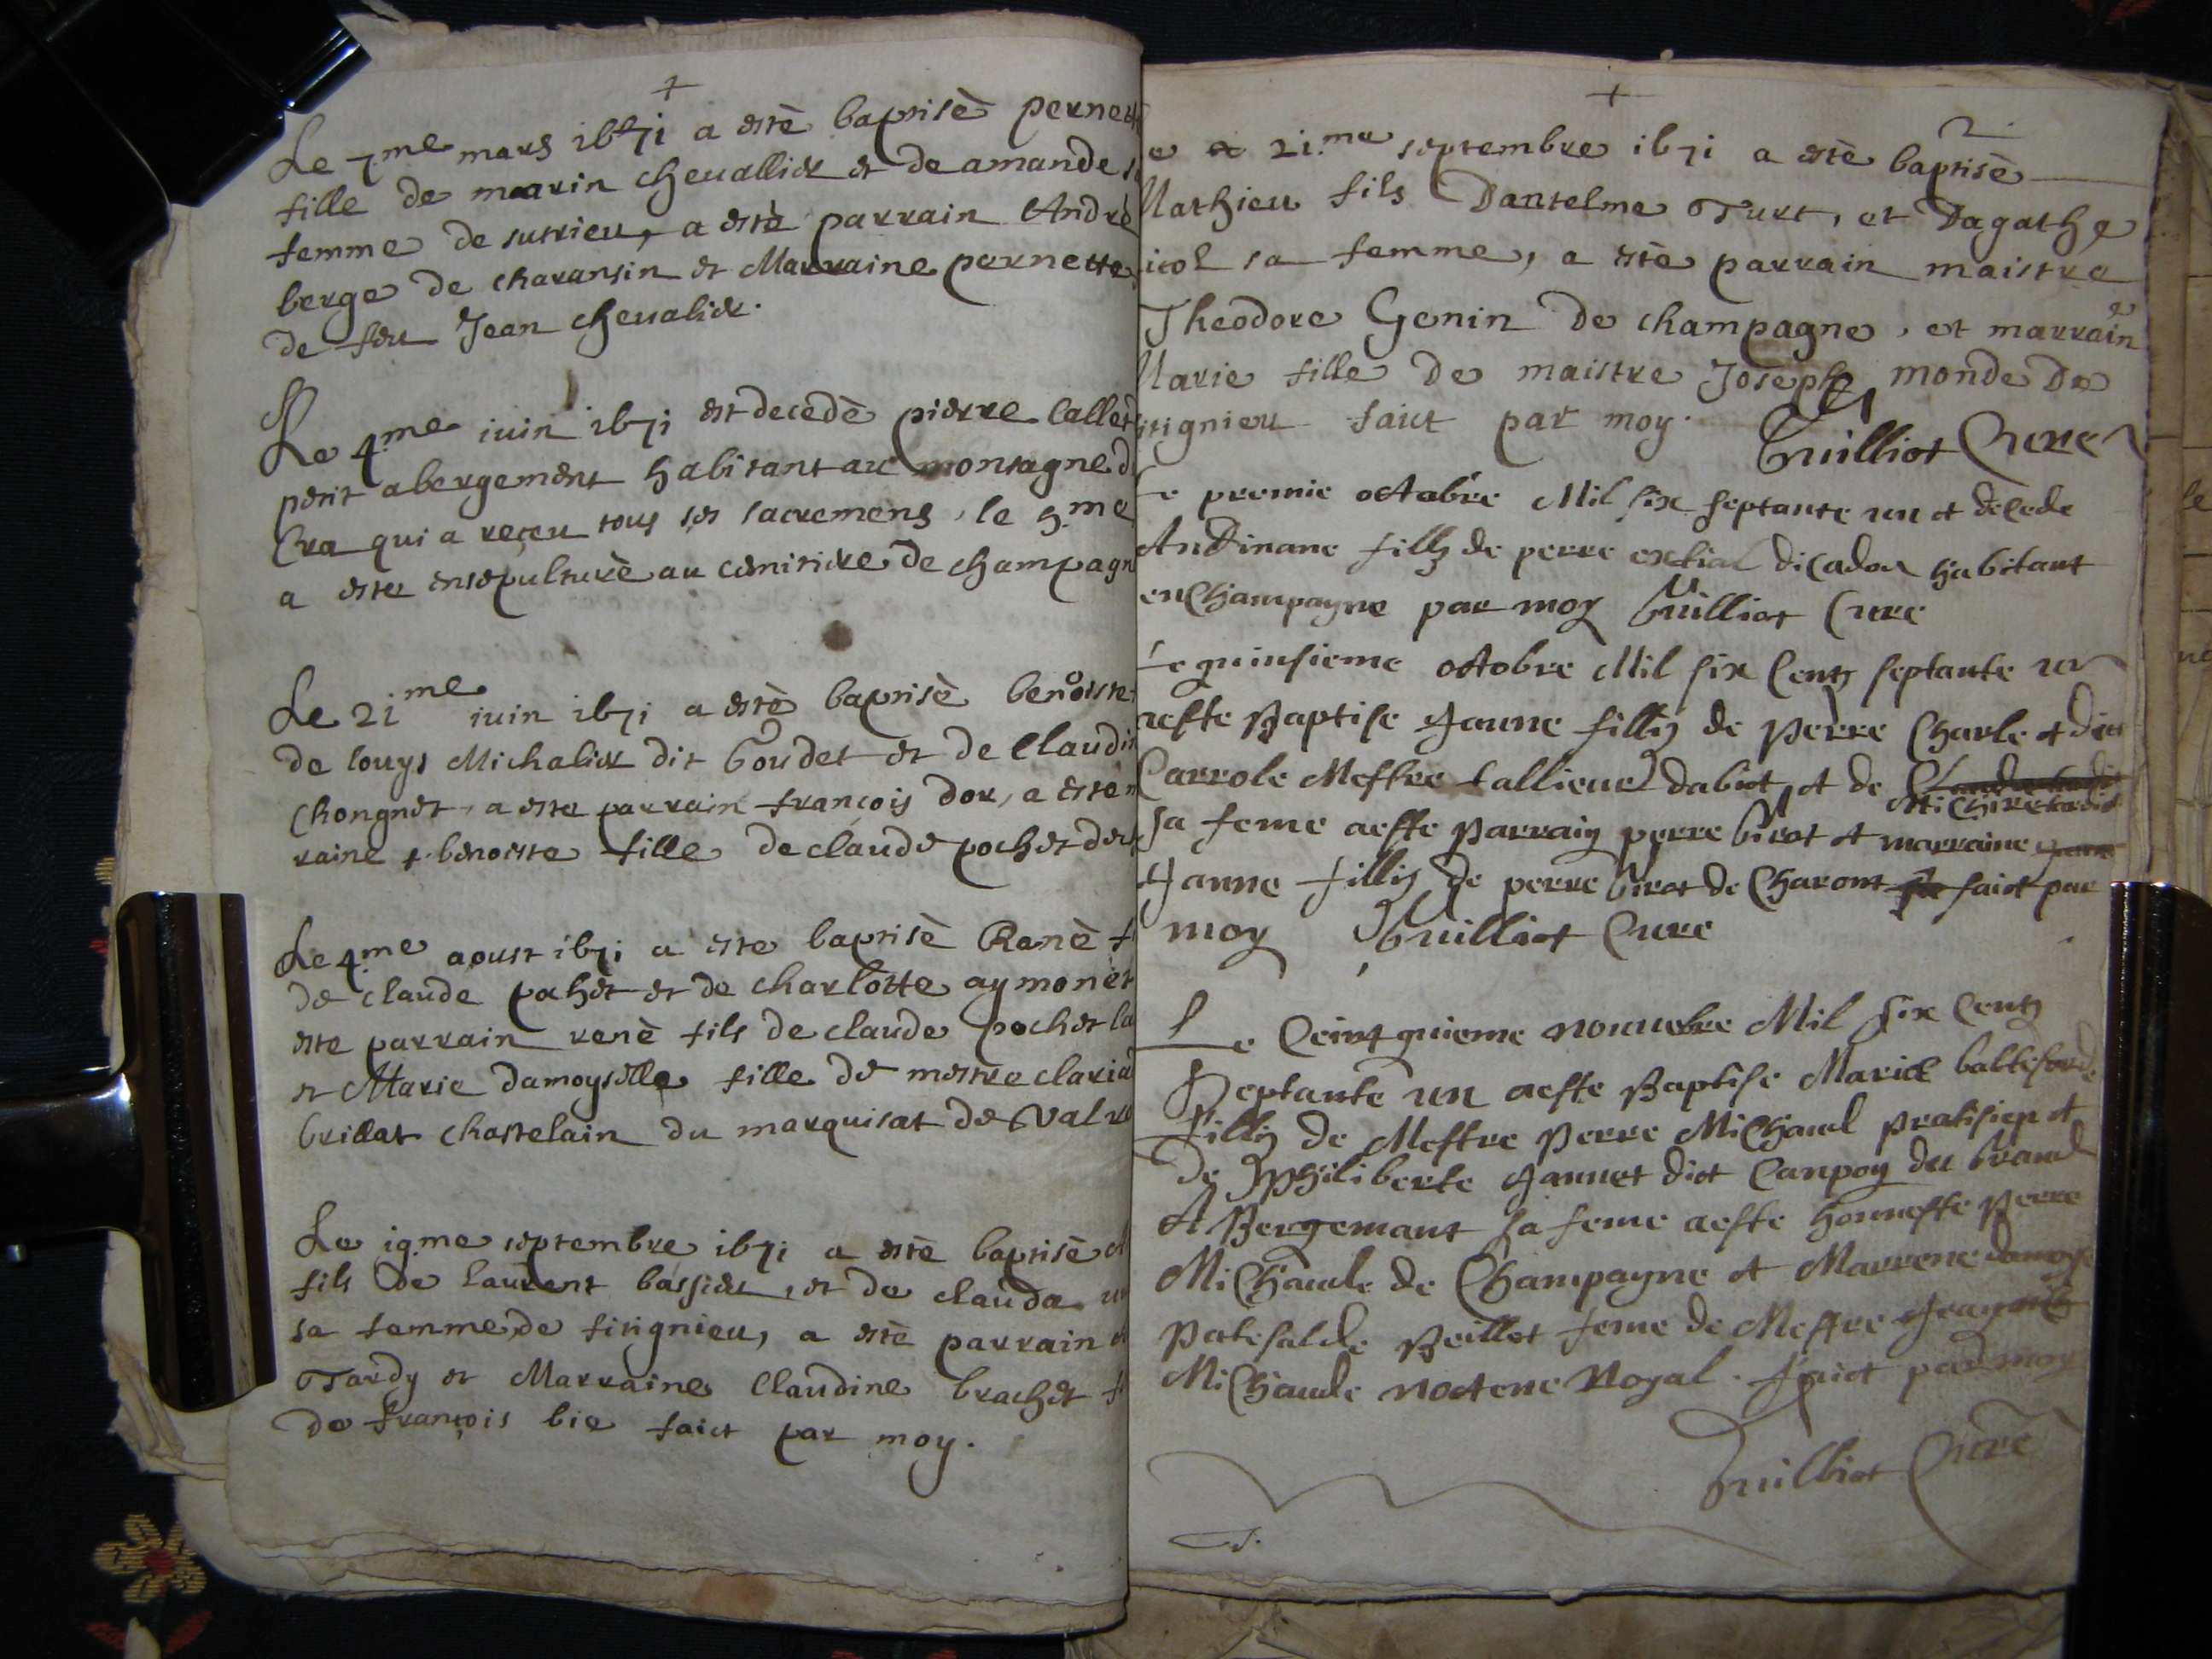 +
Le 7me mars 1671 a estè baptisè pernett
fille de marin chevallier et de amande
femme de sutrieu, a estè parrain Andrè
berge de charansin et Marraine pernette
de feu Jean chevalier.
Le 4me iuin 1671 est decedè pierre Callet
petit abergement habitant au montagne d
Cra qui a reçeu tous ses sacremens, le 5me
a este ensepulturè au cemitiere de champagn
Le 21me iuin 1671 a estè baptisè benoiste
de louys Michalier dit Goudet et de Claudi
Chongnet, a este parrain françois dor, a este
raine benoiste fille de claude pochet de
Le 4me aoust 1671 a este baptisè Ranè f
de claude pochet et de charlotte aymonet
este parrain renè fils de claude pochet
et Marie damoyselle fille de mestre claria
brillat chastelain du marquisat de Valro
Le 19me septembre 1671 a estè baptisè
fils de laurent bassieu, et de clauda
sa femme de fitignieu, a estè parrain
Tardy et Marraine Claudine brachet f
de françois bie faict par moy.
+
2
e 21.me septembre 1671 a estè baptisè
Mathieu fils Dantelme Turt, et Dagathe
icol sa femme, a estè parrain maistre
Theodore Genin de champagne, et marraine
Marie fille de maistre Joseph monde De
itignieu faict par moy. Guilliot Cure
Le premie octobre Mil six septante un et decede
Andinane fillz de perre extial dicadou habitant
en Champagne par moy Guilliot Cure
Le quinsieme octobre Mil six Centz septante un
aeste Baptise Janne fillz de Perre Charle et dict
Carrole Mestre tallieur dabiot et de
sa feme aeste Parrain perre birot et marraine
Janne fillz de perre birot de Charont faict par
moy Guilliot Cure
Le Ceint quieme nouuebre Mil six Centz
Septante un aeste Baptise Marie
fillz de Mestre Perre Michaud pratisien et
de Philiberte Jannet dict Canpoy du brand
A Bergemant sa feme aeste honneste Perre
Michaude de Champagne et Marrene
Beillet feme de Mestre
Michaude noctere Royal. faict par moy
Guilliot Curè